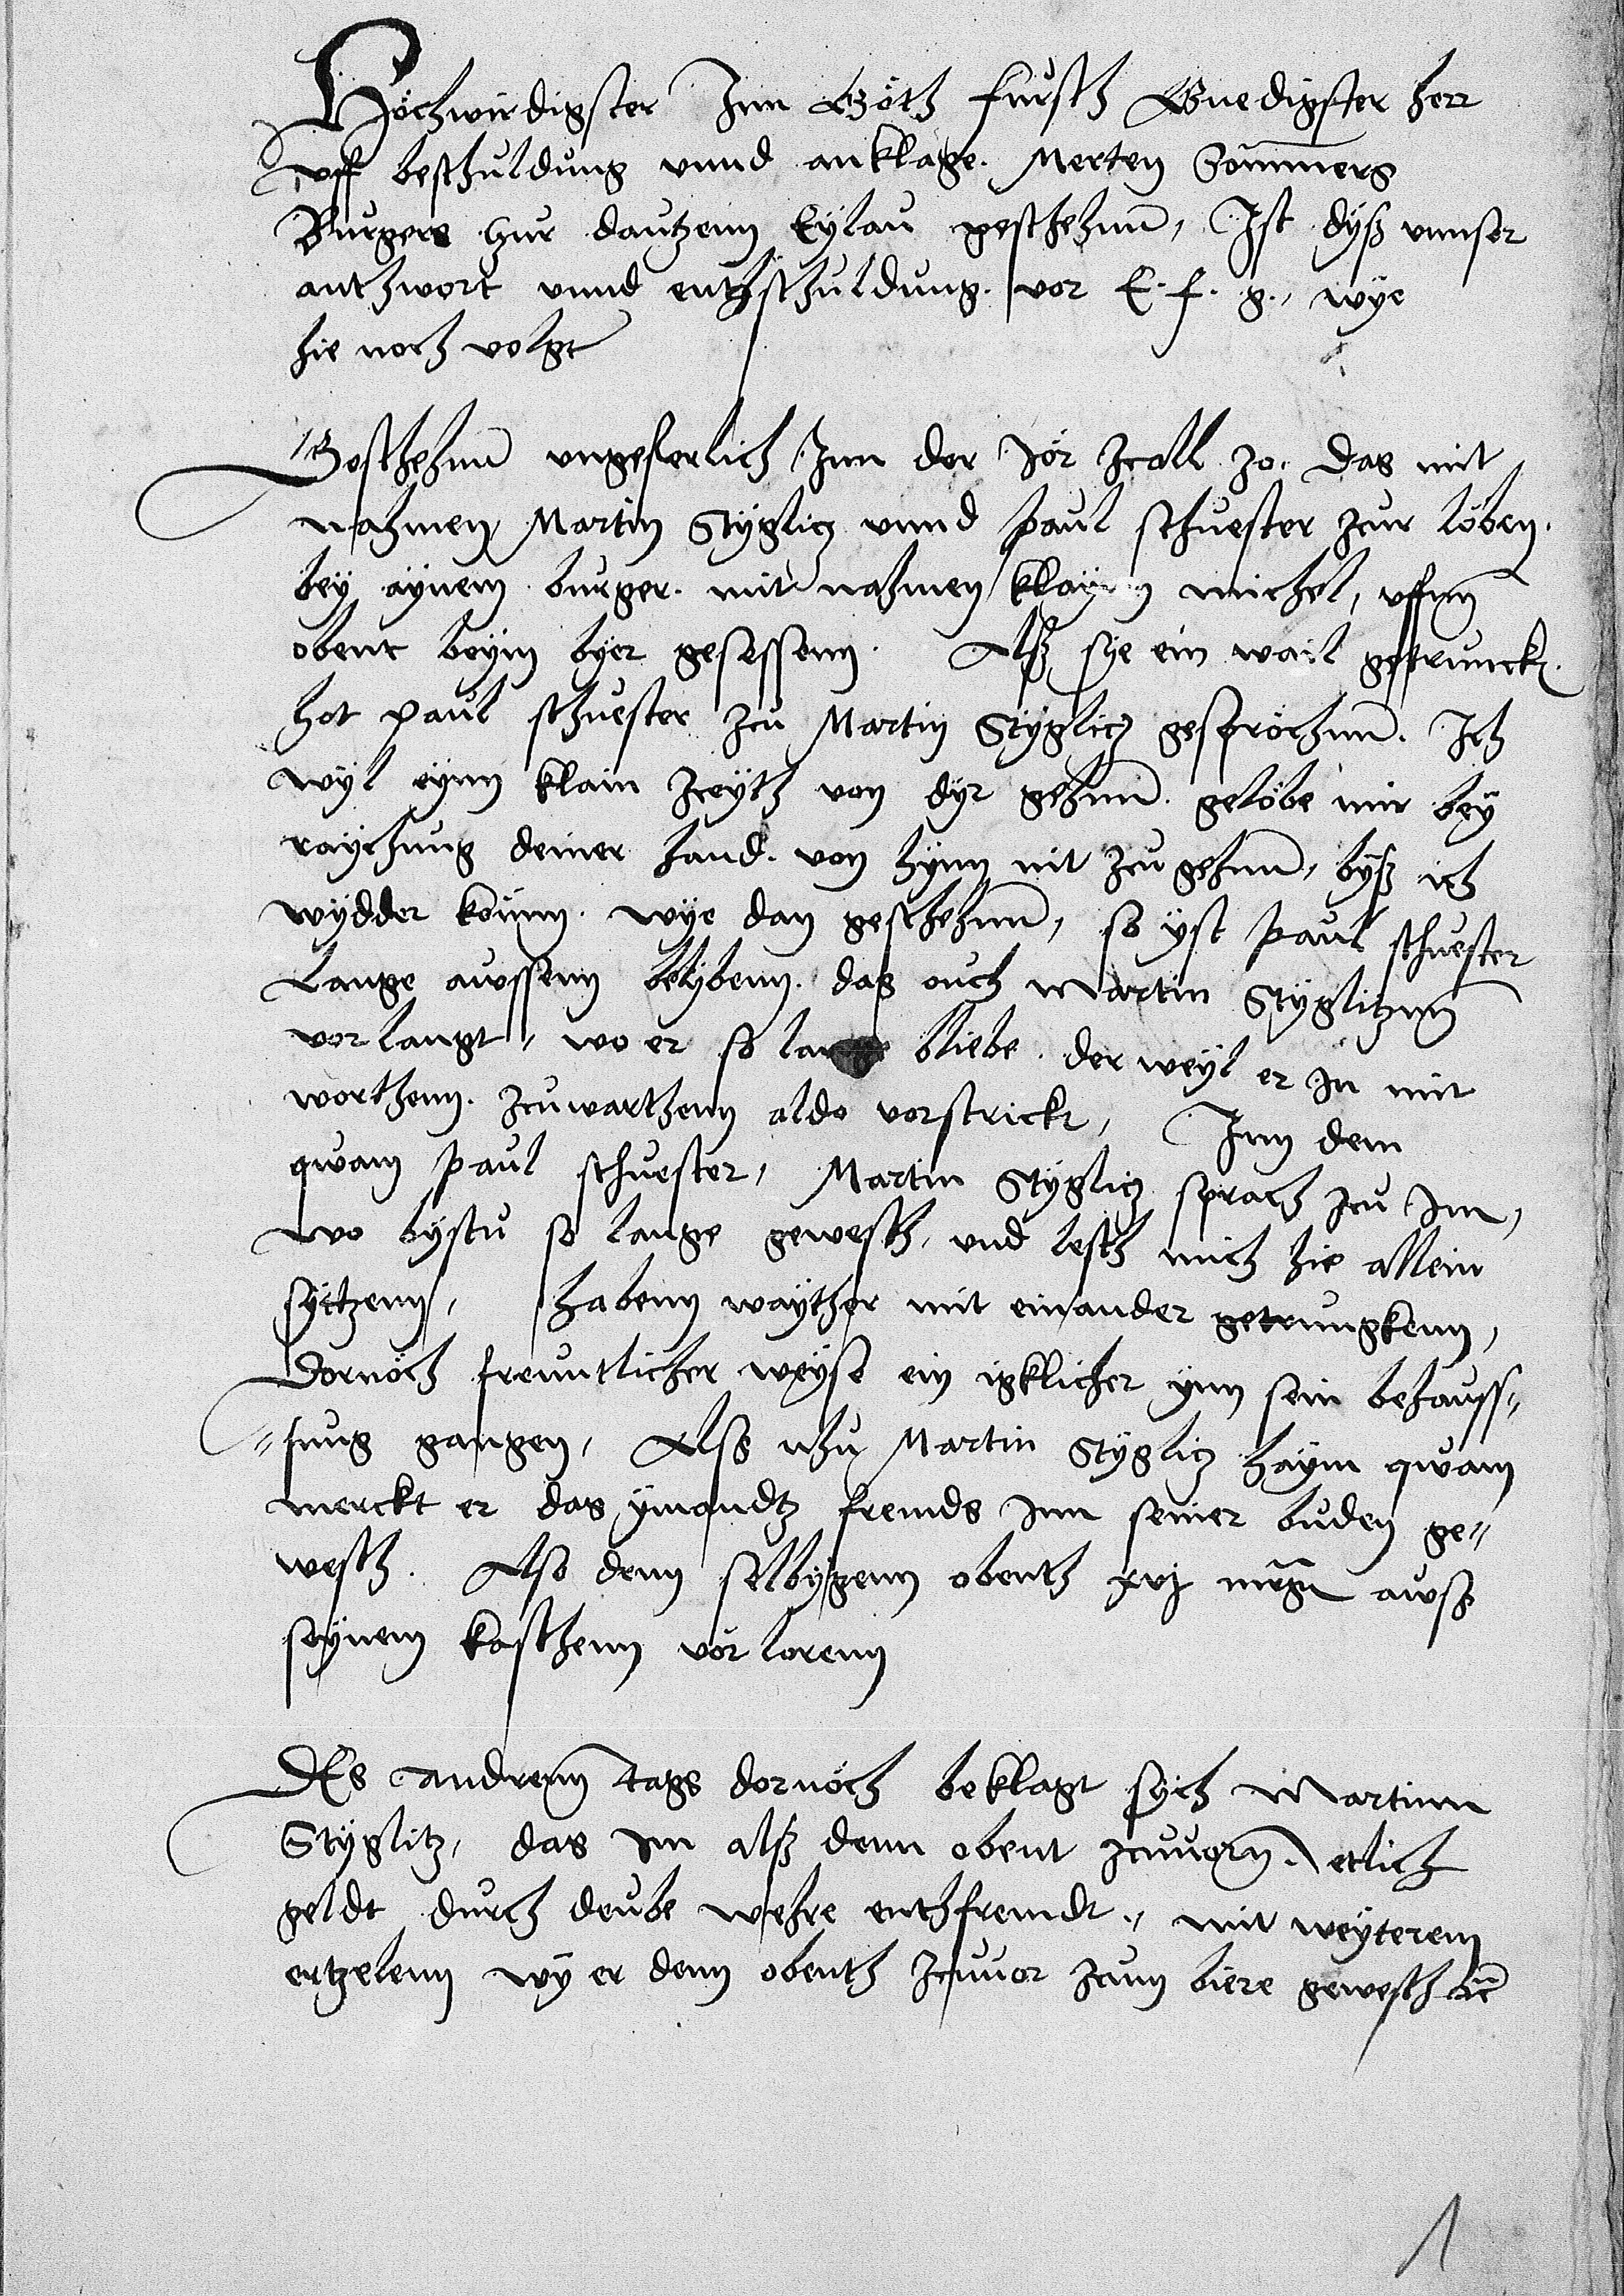 Hochwirdigster Inn Goth fursth Gnedigster herr
vff beschuldung vnnd anklage. Merten Sommers
Burgers zur dautzenn Eylau geschehnn, Ist dyß vnnser
anthwort vnnd enthschuldung. vor E. f. g., wye
hie noch volgt
Geschehnn vngeferlich Inn der Jor Zcall 20. das mit
nahmen Martin Styglicz vnnd Paul schuester zcur löben.
bey aynem burger. mit nahmen klayn michel, vffnn
obent beym byer gesessenn. Alß sye ein wail getrunck.
hot paul schuester zcu Martin Styglicz gesprochnn. Ich
wyl eynn klain zceyth von dyr gehnn. gelobe mir bey
raychung deiner hand. von hynn nit zcu gehnn, byß ich
wydder komm. wye dan geschehnn, so yst Paul schuester
Lange aussenn belybenn. das auch Martin Styglitznn
vorlangt, wo er so lange bliebe. der weyl er in mit
worthenn. zcuwarthenn aldo vorstrickt, Inn dem
qwam paul schuester, Martin Styglicz sprach zcu Im,
wo bystu so lange gewesth, vnd lesth mich hie allein
syctzenn, habenn wayther mit einander getrungkenn,
Dornoch freuntlicher weyse ein igklicher ynn sein behauss-
sung gangen, Alß nhu Martin Styglicz haym qwam
merckt er das ymandtz fremds Inn seiner buden ge-
westh. Also denn selbygenn obenth xvj mrgk auß
seynem kasthenn vorlorenn
Des andrenn tags dornoch beklagt sych Martinn
Styglitz, das im alß denn obent zcuuorn. etlich
geldt durch deube wehre enthfremdt, mit weyterem
ertzelenn wy er denn obenth zcuuor zcum biere gewesth etc
1